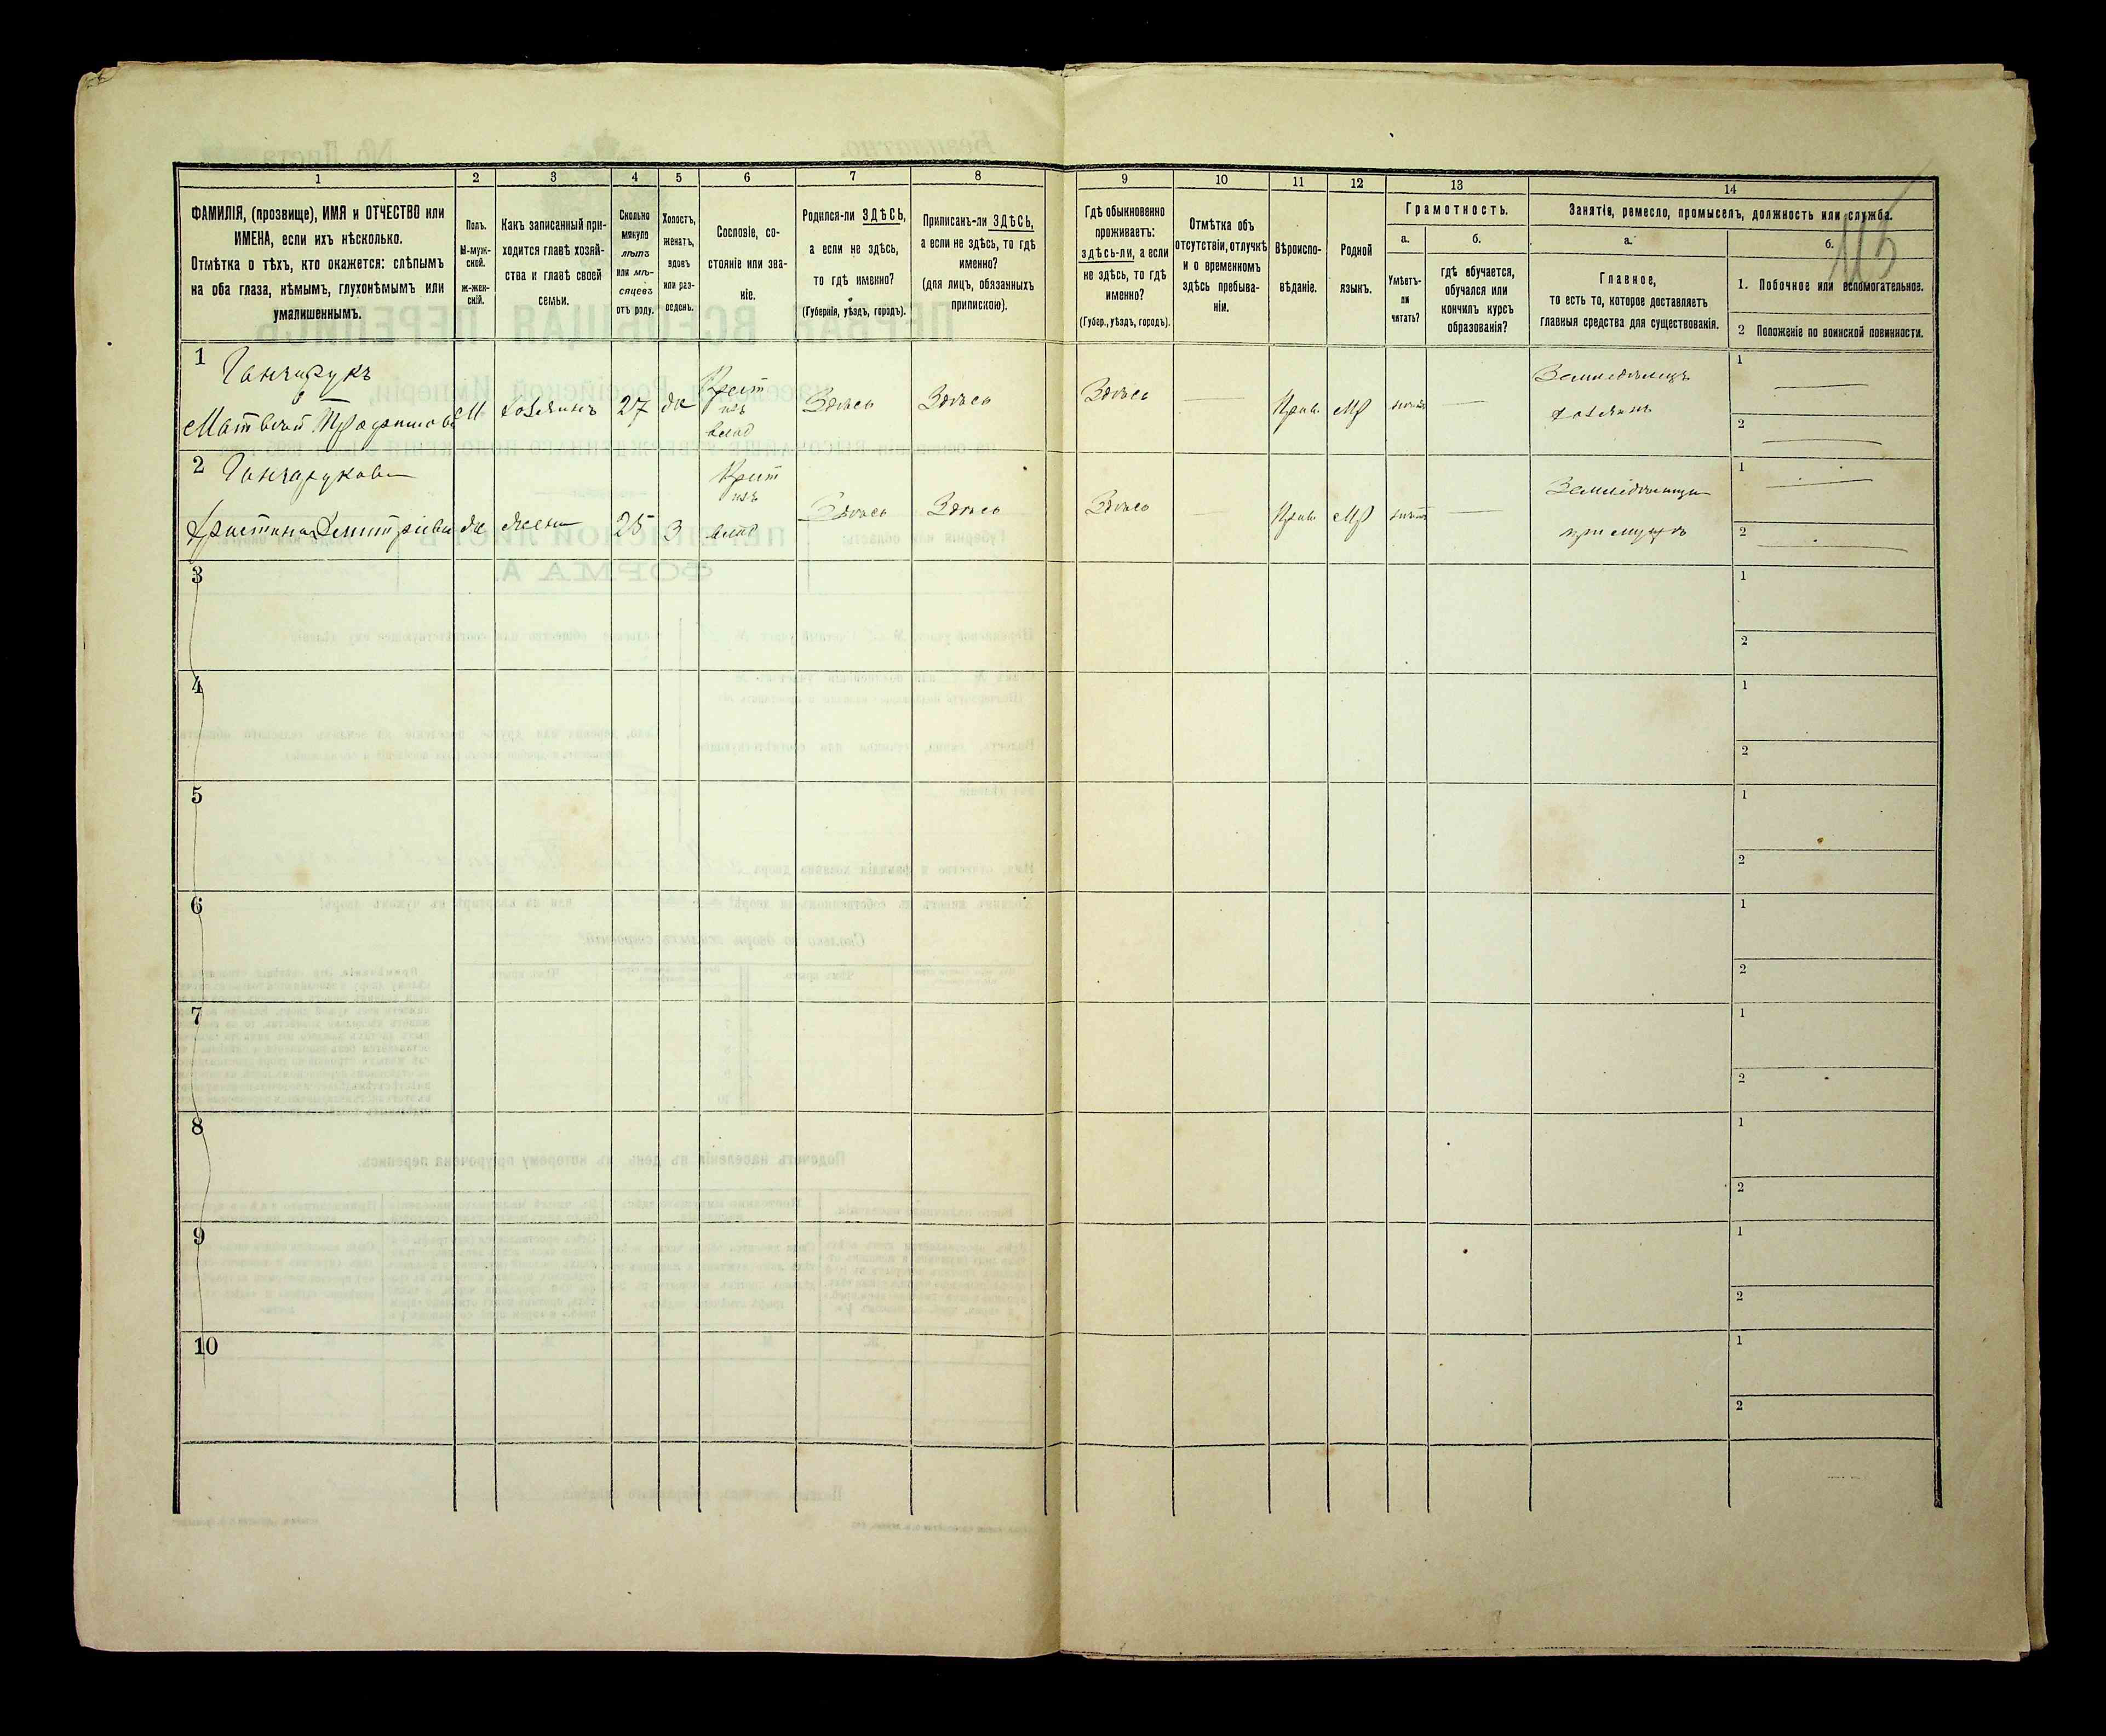 1
2
3
4
5
6
7
8
ФАМИЛІЯ, (прозвище), ИМЯ и ОТЧЕСТВО или
ИМЕНА, если ихъ нѣсколько.
Отмѣтка о тѣхъ, кто окажется: слѣпымъ
на оба глаза, нѣмымъ, глухонѣмымъ или
умалишеннымъ.
Полъ.
М-муж-
ской.
Ж-жен-
скій.
Какъ записанный при-
ходится главѣ хозяй-
ства и главѣ своей
семьи.
Сколько
минуло
лѣтъ
или мѣ-
сяцевъ
отъ роду.
Холостъ,
женатъ,
вдовъ
или раз-
веденъ.
Сословіе, со-
стояніе или зва-
ніе.
Родился-ли ЗДѢСЬ,
а если не здѣсь,
то гдѣ именно?
(Губернія, уѣздъ, городъ).
Приписанъ-ли ЗДѢСЬ,
а если не здѣсь, то гдѣ
именно?
(для лицъ, обязанныхъ
припискою).
9
10
11
12
13
14
Гдѣ обыкновенно
проживаетъ:
здѣсь-ли, а если
не здѣсь, то гдѣ
именно?
(Губер., уѣздъ, городъ).
Отмѣтка объ
отсутствіи, отлучкѣ
и о временномъ
здѣсь пребыва-
ніи.
Вѣроиспо-
вѣданіе.
Родной
языкъ.
Грамотность.
а.
б.
Умѣетъ-
ли
читать?
гдѣ обучается,
обучался или
кончилъ курсъ
образованія?
Занятіе, ремесло, промыселъ, должность или служба.
а.
б.
Главное,
то есть то, которое доставляетъ
главныя средства для существованія.
1. Побочное или вспомогательное.
2 Положеніе по воинской повинности.
115
1
Ганчарукъ
Матвѣй
М
хозяинъ
27
ж
Крест
изъ
влад
Здѣсь
Здѣсь
Здѣсь
Прав.
Мр
нѣтъ
Земледѣлецъ
хозяинъ
1
2
2
Ганчарукова
Христина Дмитріева
ж
жена
25
З
Крест
изъ
влад
Здѣсь
Здѣсь
Здѣсь
Прав.
Мр
нѣтъ
Земледѣлица
при мужѣ
1
2
3
1
2
4
1
2
5
1
2
6
1
2
7
1
2
8
1
2
9
1
2
10
1
2